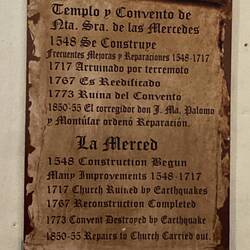 Templo y Convento de
Nta. Sra. de las Mercedes
1548 Se Construye
Frecuentes Mejoras y Reparaciones 1548-1717
1717 Arruinado por terremoto
1767 Es Reedificado
1773 Ruina del Convento
1850-55 El corregidor don J. Ma. Palomo
y Montúfar ordenó Reparación.
La Merced
1548 Construction Begun
Many Improvements 1548-1717
1717 Church Ruined by Earthquakes
1767 Reconstruction Completed
1773 Convent Destroyed by Earthquake
1850-55 Repairs to Church Carried out.